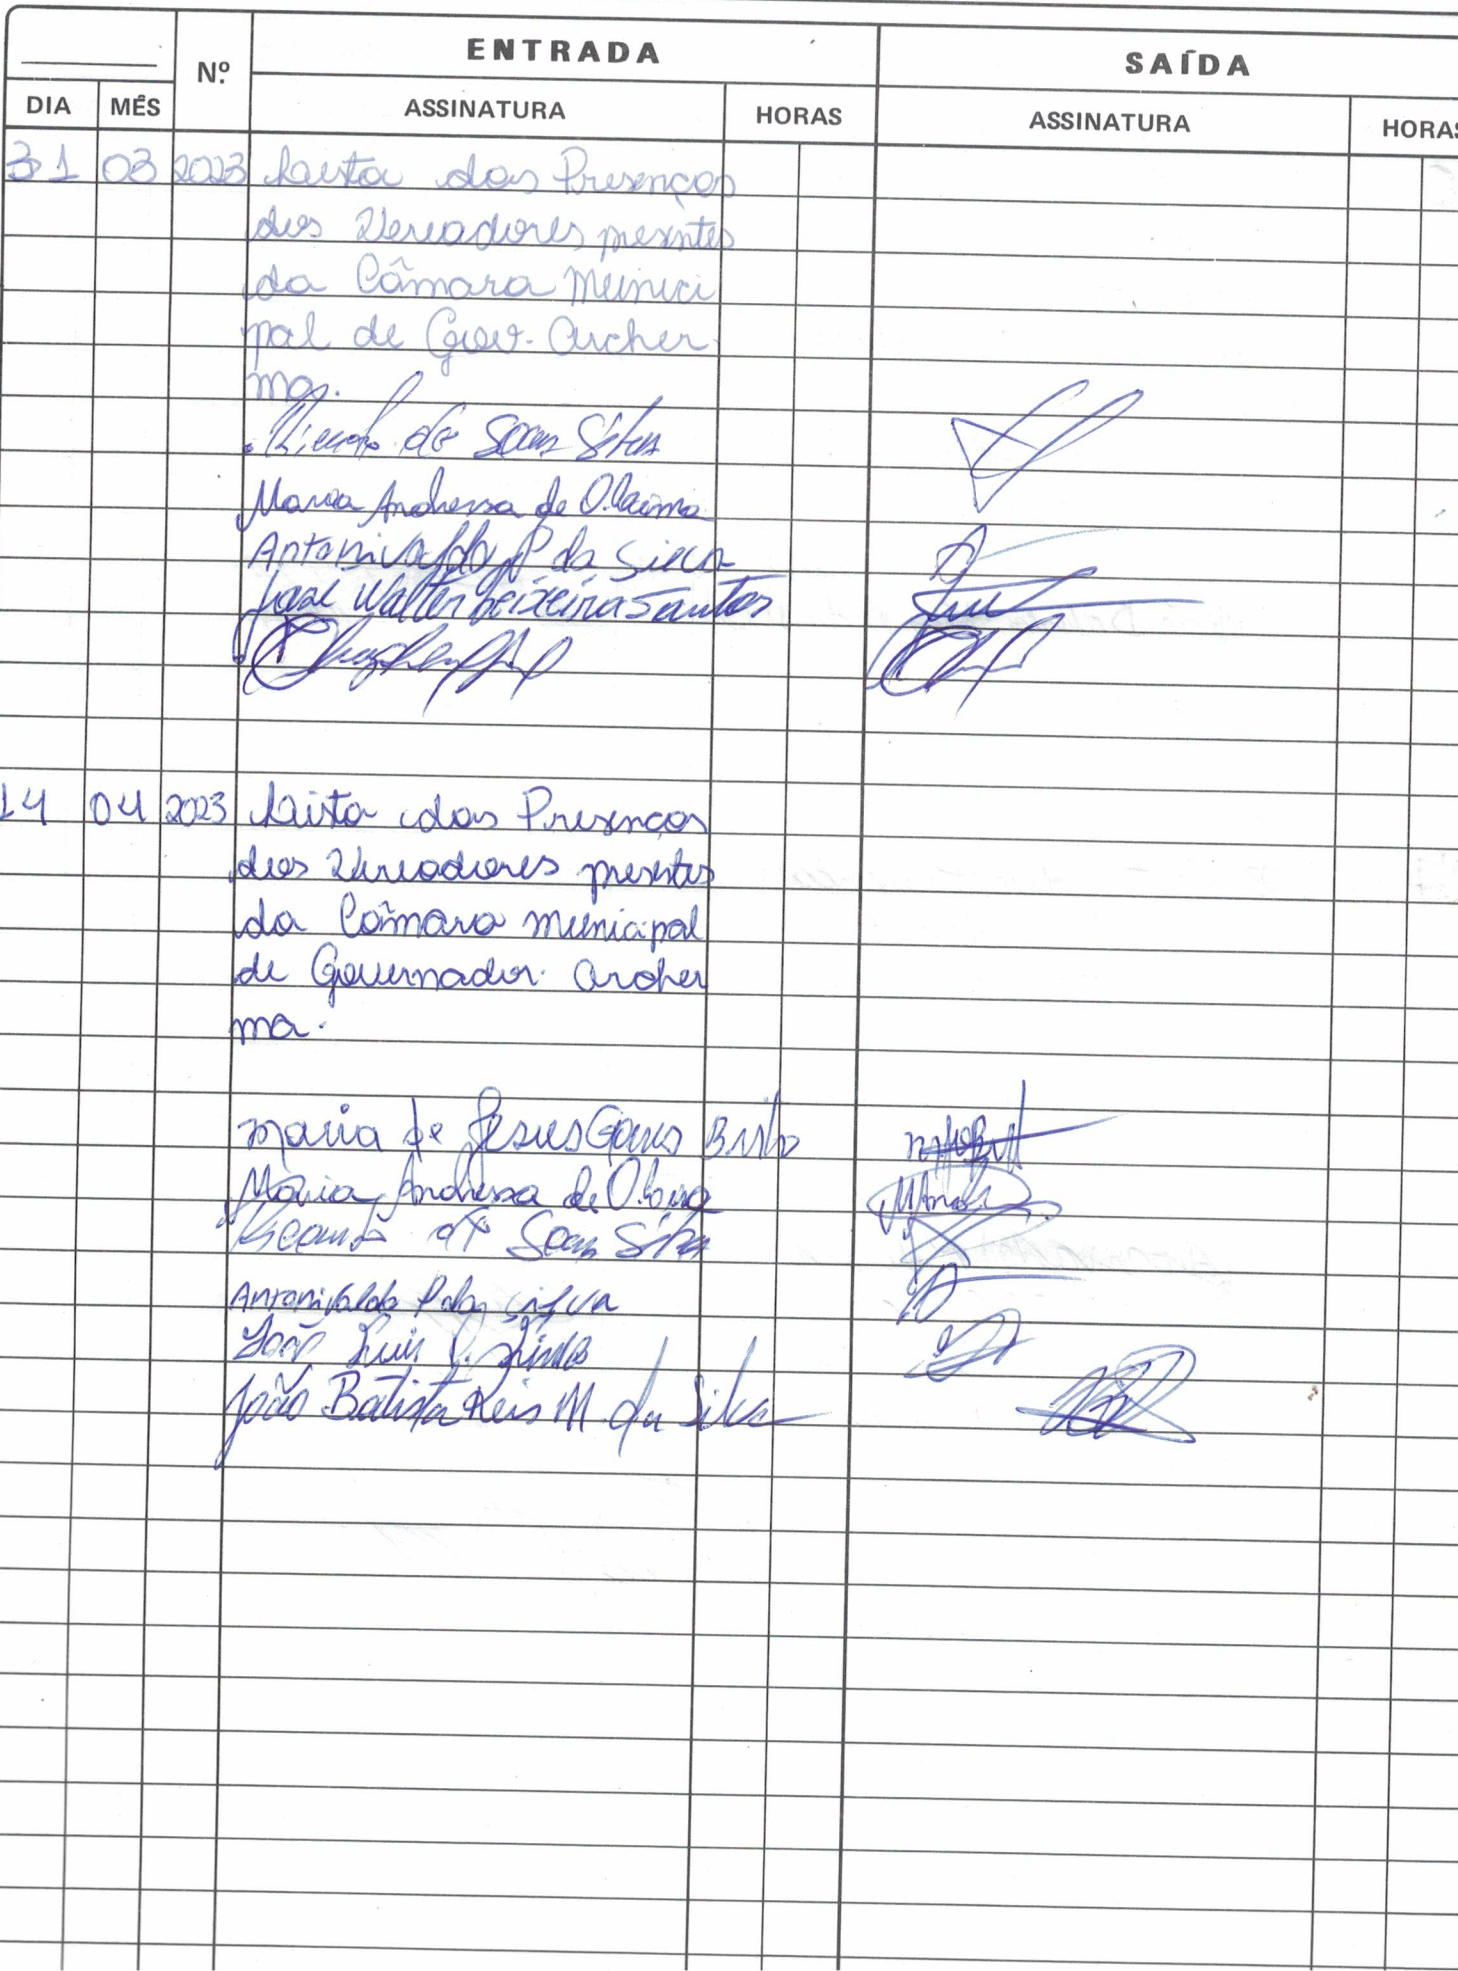 ENTRADA SAÍDA
Nº
DIA MÊS ASSINATURA HORAS ASSINATURA HORAS
31 03 2023 Lista das Presenças
dos Vereadores presentes
da Câmara Munici
pal de Gov. Archer
ma.
de Silva
Maria Andressa de
Antonivaldo P da Silva
José Walter Teixeira Santos
14 04 2023 Lista das Presenças
dos Vereadores presentes
da Câmara municipal
de Governador Archer
ma.
maria de Jesus Gomes Brito
Maria Andressa de
Silva
Antonivaldo P da Silva
João Luis
João Batista Reis M. da Silva